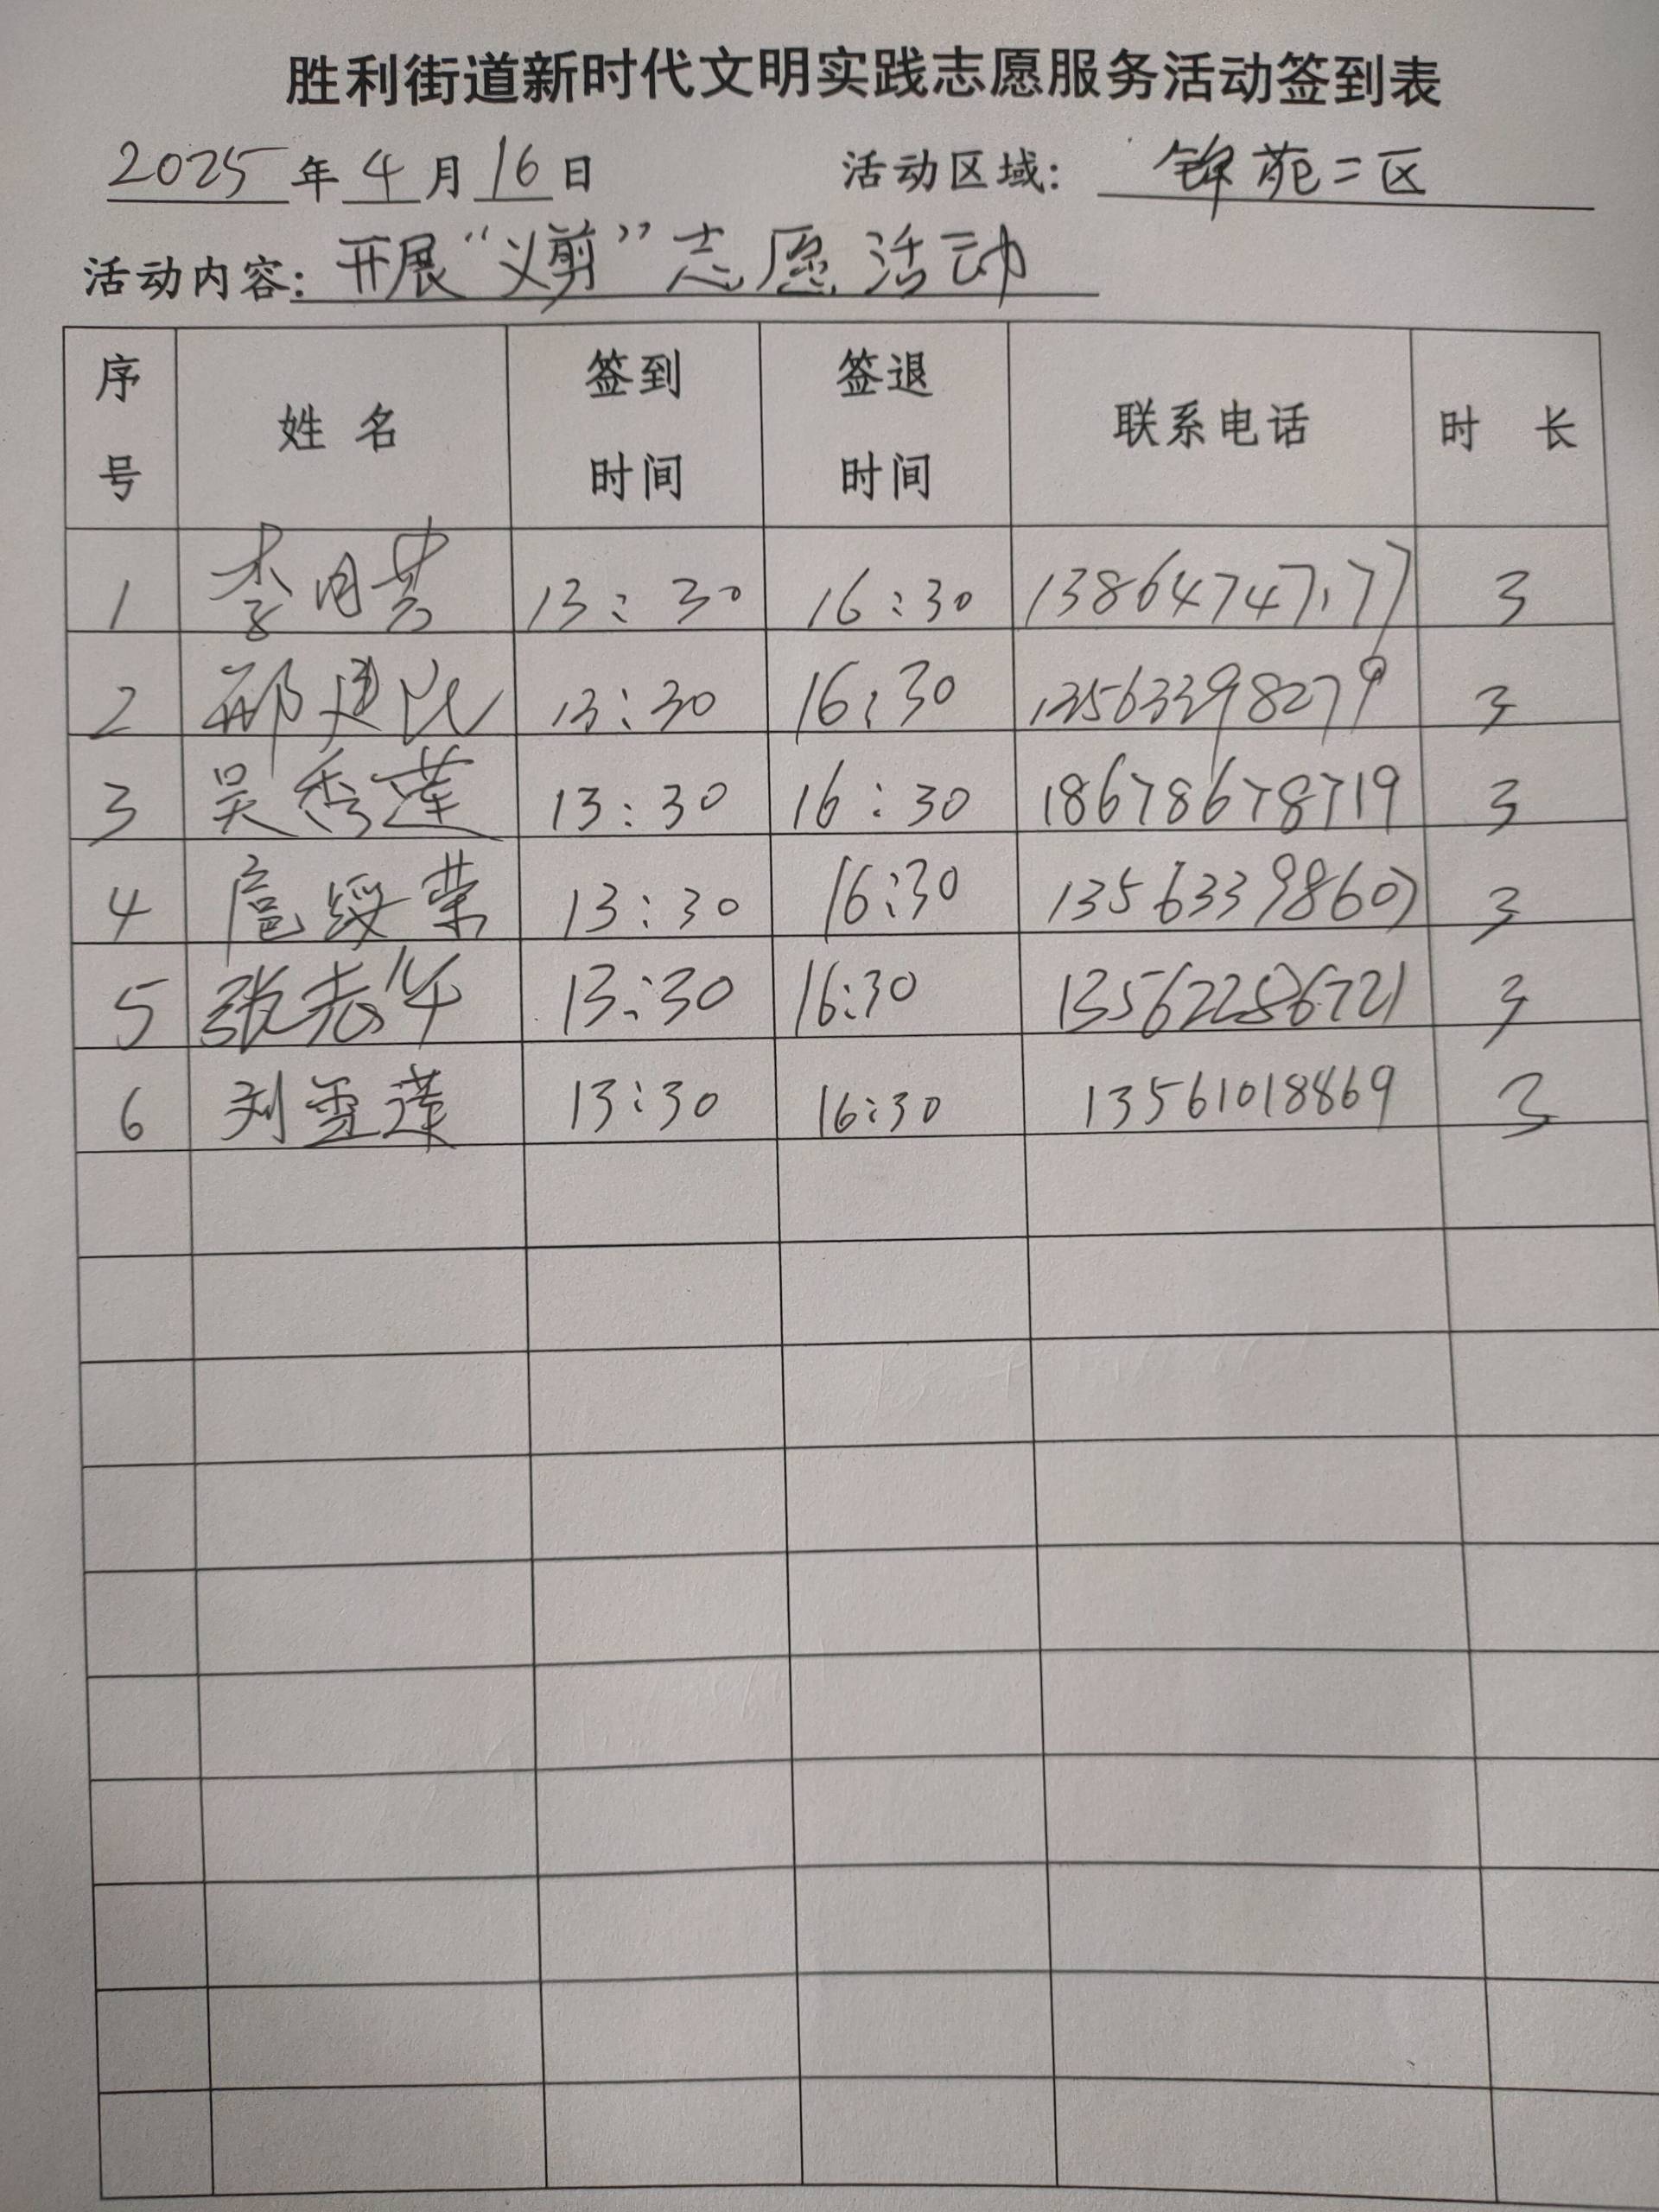 胜利街道新时代文明实践志愿服务活动签到表
2025年4月16日 活动区域：锦苑二区
活动内容：开展“义剪”志愿活动
序号 姓名 签到时间 签退时间 联系电话 时长
1 李月芳 13:30 16:30 13864747177 3
2 邢建民 13:30 16:30 13563398279 3
3 吴秀莲 13:30 16:30 18678678719 3
4 扈绶荣 13:30 16:30 13563398607 3
5 张志华 13:30 16:30 13562286721 3
6 刘雪莲 13:30 16:30 13561018869 3